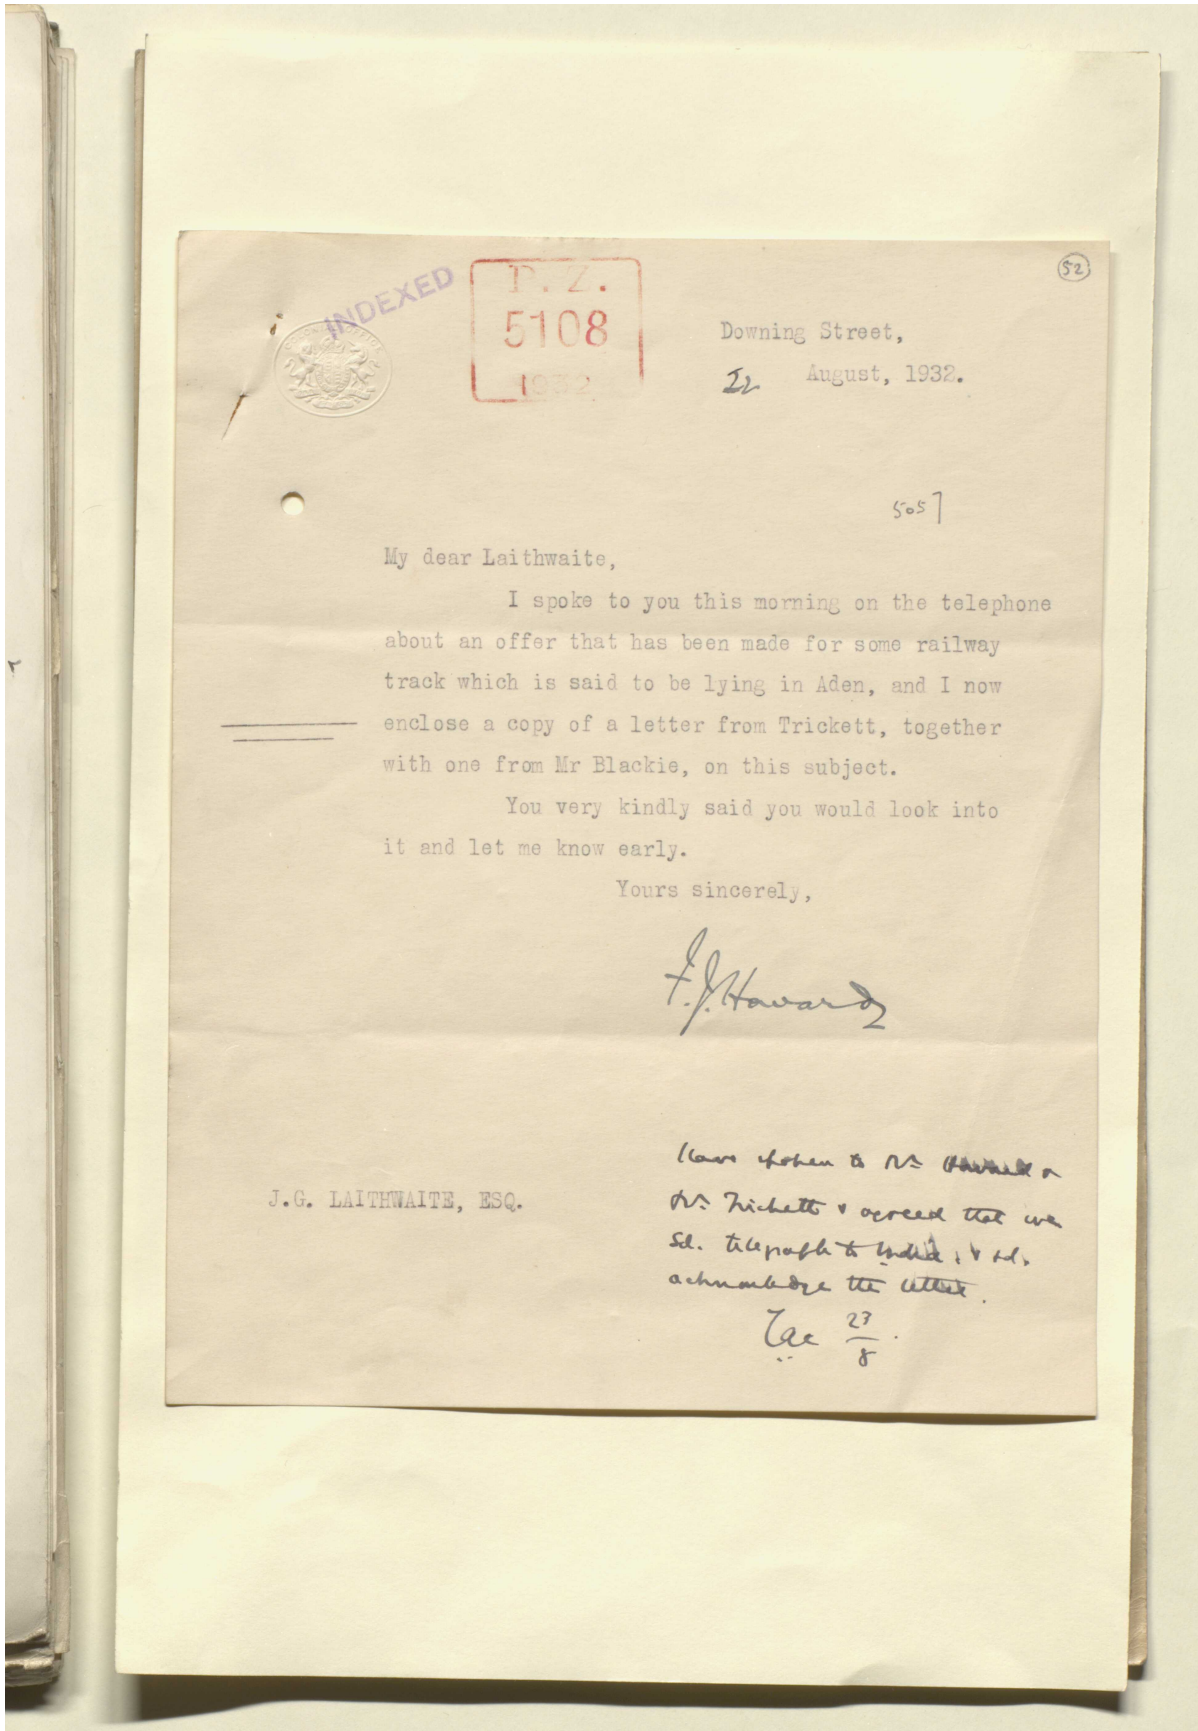 52
INDEXED
P. Z.
5108
1932
COLONIAL OFFICE
Downing Street,
22 August, 1932.
5057
My dear Laithwaite,
I spoke to you this morning on the telephone
about an offer that has been made for some railway
track which is said to be lying in Aden, and I now
enclose a copy of a letter from Trickett, together
with one from Mr Blackie, on this subject.
You very kindly said you would look into
it and let me know early.
Yours sincerely,
F.J. Howard
J.G. LAITHWAITE, ESQ.
Have spoken to Mr Howard &
Mr Trickett & agreed that we
sd. telegraph to India, & sd.
acknowledge the letter.
23/8